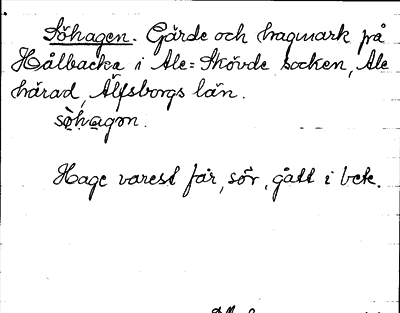 Söhagen. Gärde och hagmark på
Hålbacka i Ale=Skövde socken, Ale
härad, Älfsborgs län.
söhagon.
Hage varest får, sör, gått i bek.